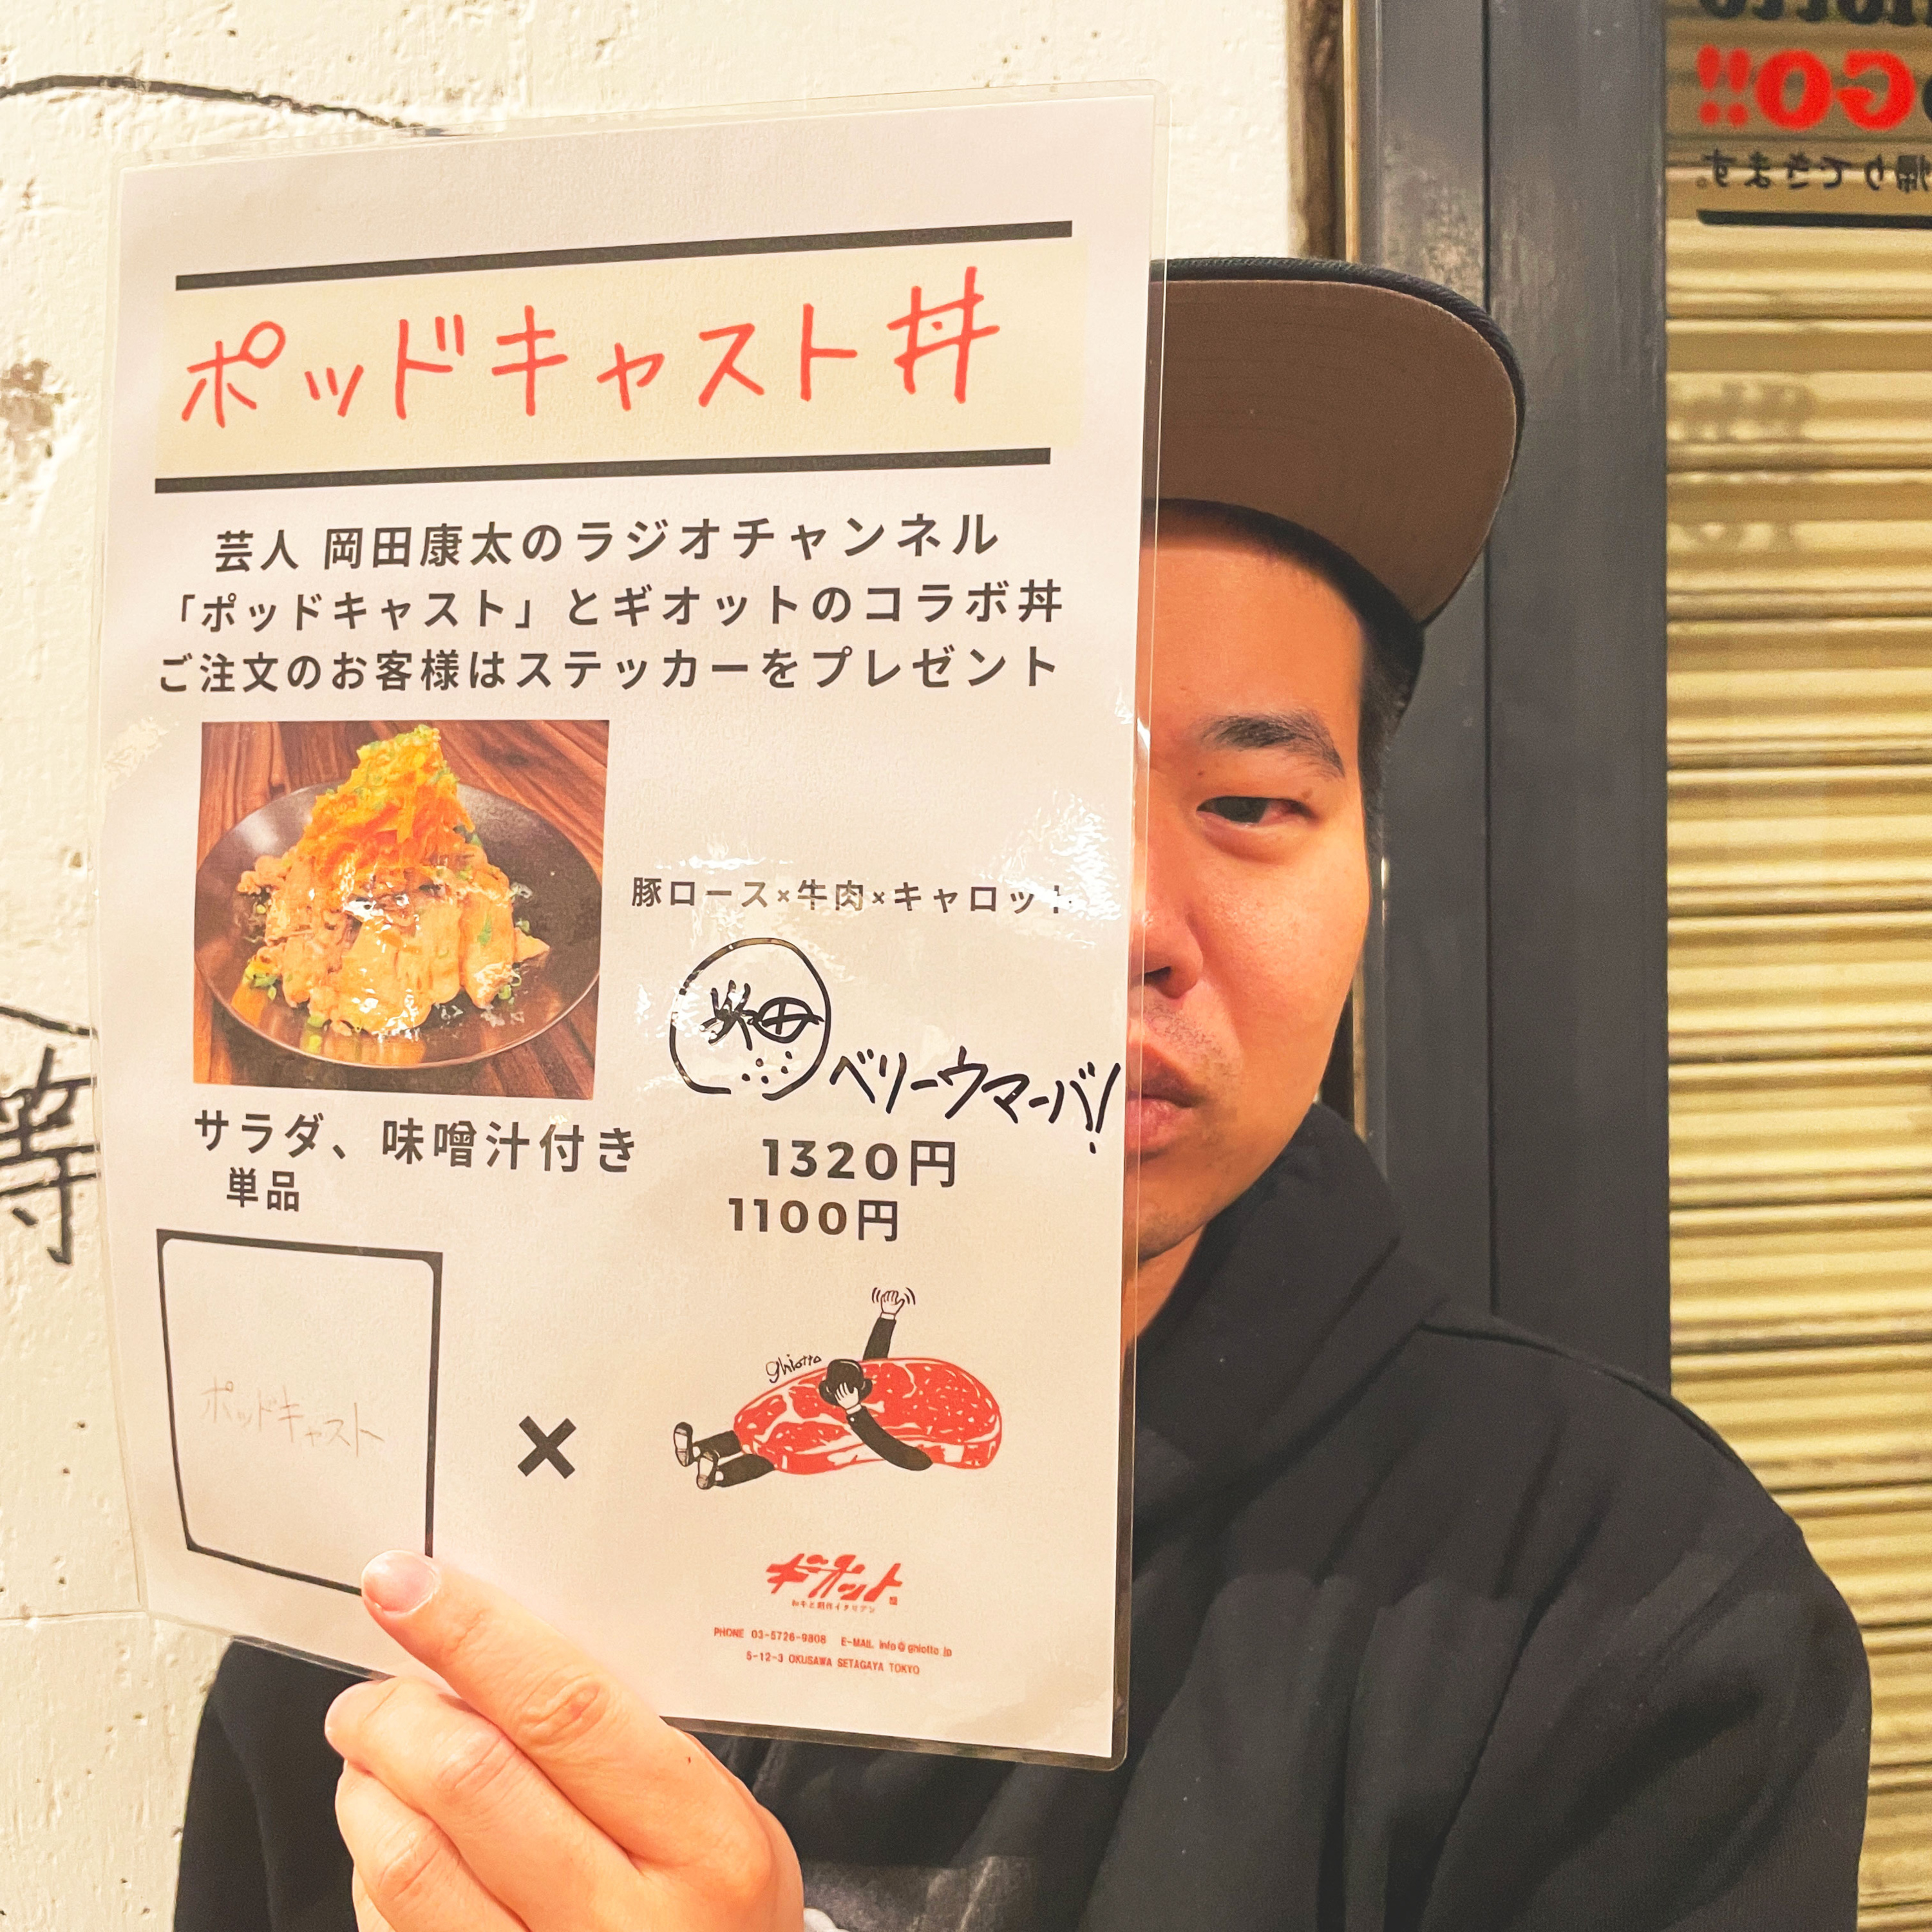 GO!!
帰りできます。
ポッドキャスト丼
芸人 岡田康太のラジオチャンネル
「ポッドキャスト」とギオットのコラボ丼
ご注文のお客様はステッカーをプレゼント
豚ロース×牛肉×キャロット
畑
ベリーウマーバ!
サラダ、味噌汁付き 1320円
単品 1100円
等
ポッドキャスト
×
ghiotto
ギオット
和牛と創作イタリアン
PHONE 03-5726-9808 E-MAIL info@ghiotto.jp
5-12-3 OKUSAWA SETAGAYA TOKYO